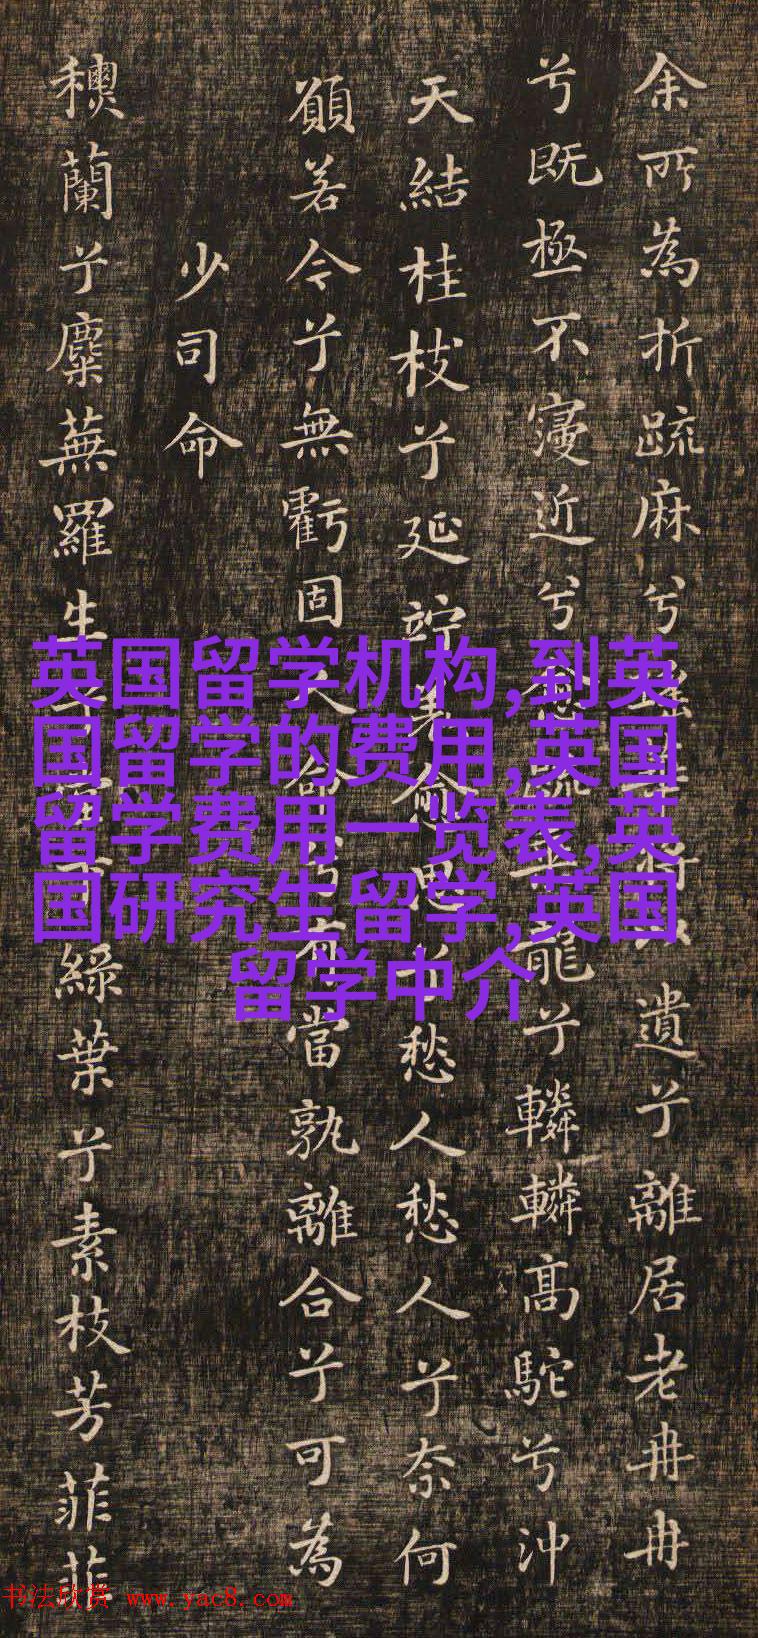 余所為折疏麻兮遺兮離居老冉冉
兮既極不寖近兮愈疏龍兮轔轔高駝兮沖
天結桂枝兮延竚羌愈思兮愁人愁人兮奈何
願若今兮無虧固人命兮有當孰離合兮可為
少司命
穠蘭兮麋蕪羅生兮堂下綠葉兮素枝芳菲菲
英国留学机构,到英
国留学的费用,英国
留学费用一览表,英
国研究生留学,英国
留学中介
书法欣赏 www.yac8.com